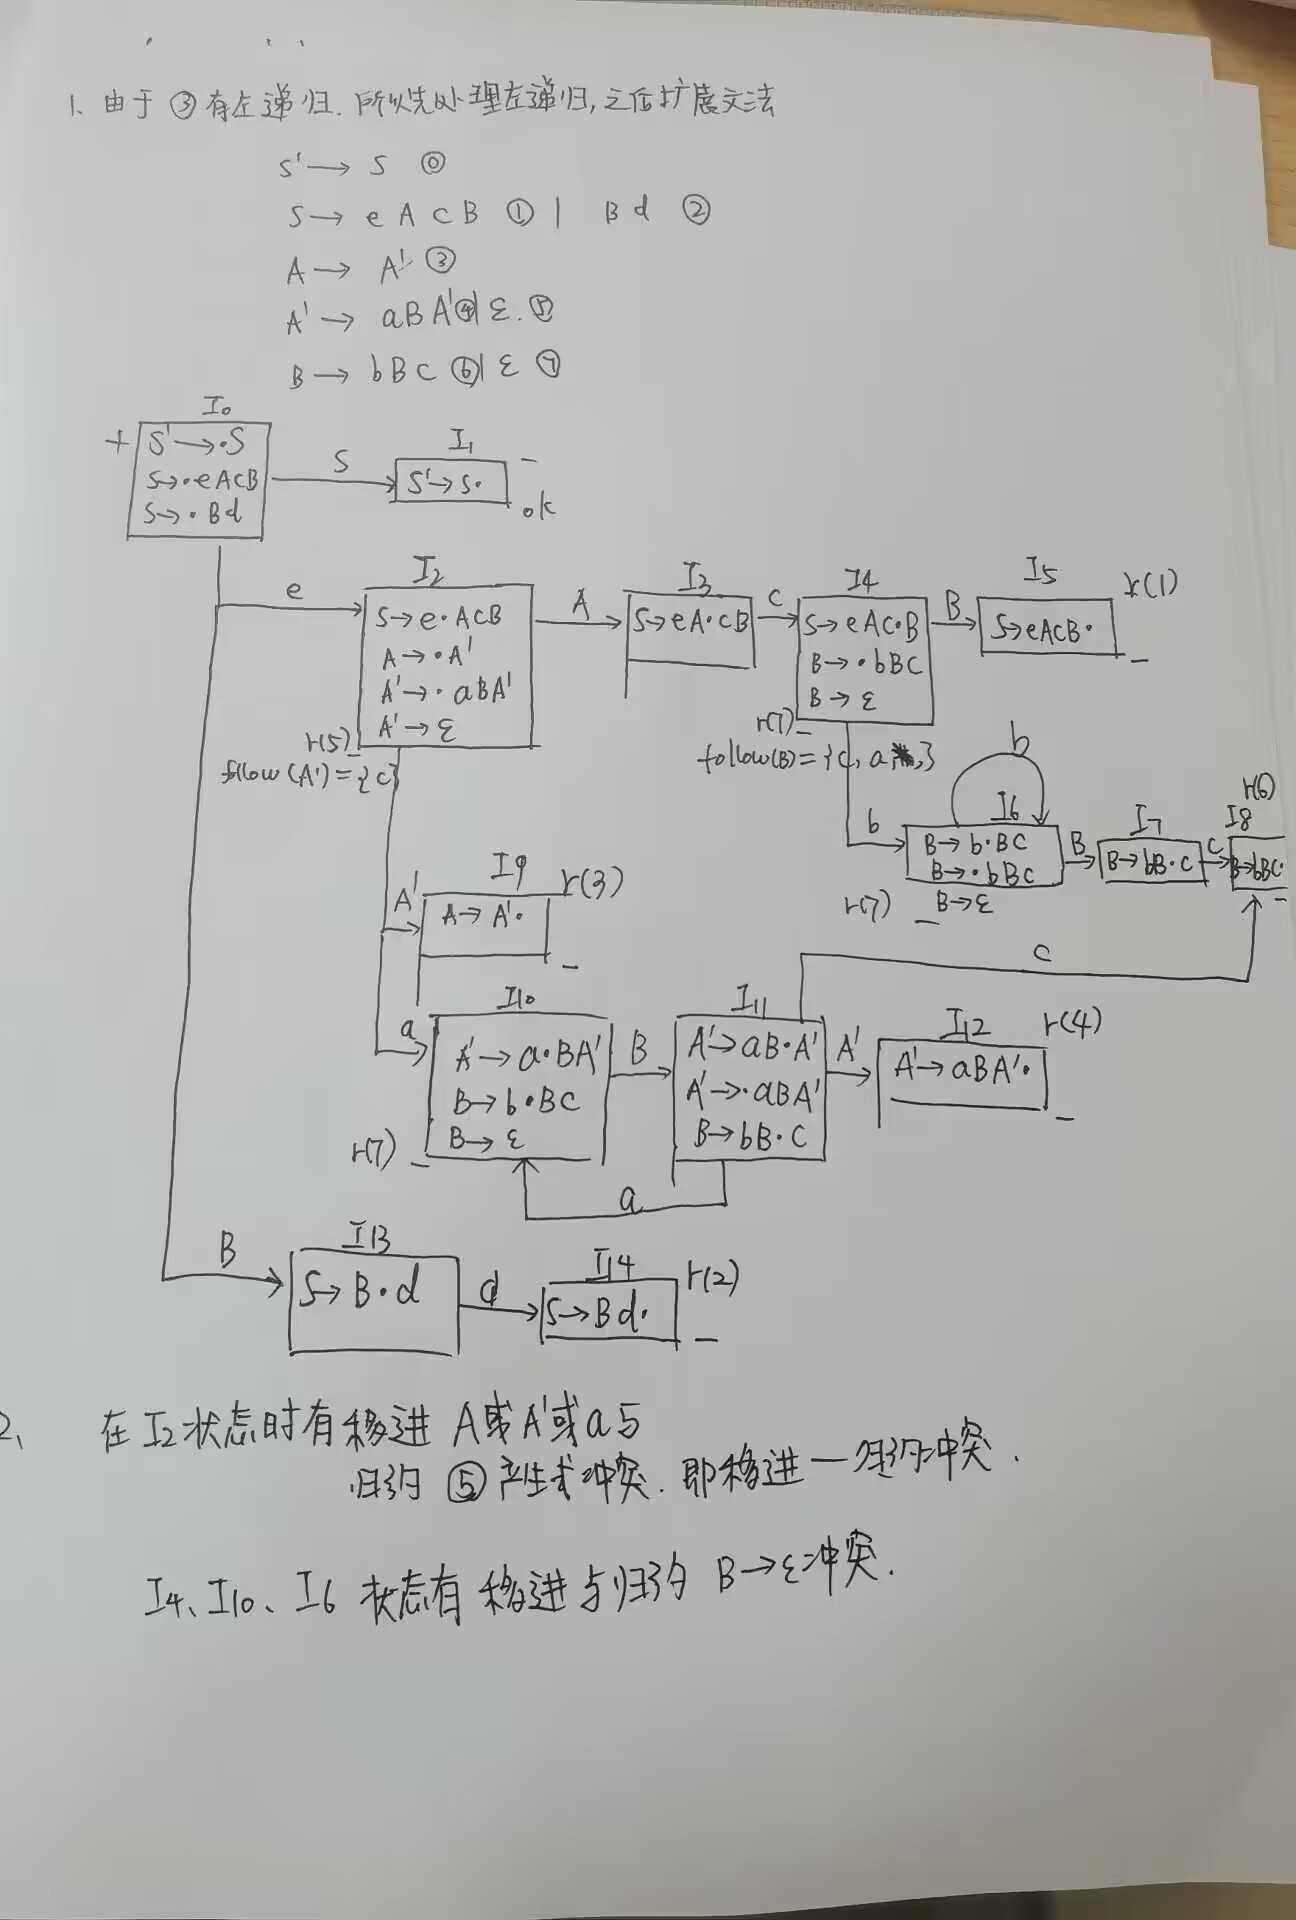 1. 由于③有左递归.所以先处理左递归,之后扩展文法
S' → S ⓪
S → e A c B ① | B d ②
A → A' ③
A' → aBA'④| ε. ⑤
B → bBc ⑥| ε ⑦
I0
+
S' → ·S
S → ·eAcB
S → ·Bd
S
I1
S' → S·
-
ok
e
I2
S → e·AcB
A → ·A'
A' → ·aBA'
A' → ε
r(5)-
follow(A')={c}
A
I3
S → eA·cB
c
I4
S → eAc·B
B → ·bBC
B → ε
r(7)-
follow(B)={d, a, }
B
I5
S → eAcB·
r(1)
-
b
b
I6
B → b·BC
B → ·bBc
B → ε
r(7) -
B
I7
B → bB·c
c
I8
r(6)
B → bBC·
-
A'
I9
A → A'·
r(3)
-
a
I10
A' → a·BA'
B → b·BC
B → ε
r(7) -
B
I11
A' → aB·A'
A' → ·aBA'
B → bB·C
c
a
A'
I12
A' → aBA'·
r(4)
-
B
I13
S → B·d
d
I14
S → Bd·
r(2)
-
2、在I2状态时有移进 A或A'或a与
归约 ⑤ 产生式冲突.即移进—归约冲突.
I4、I10、I6 状态有移进与归约 B→ε冲突.